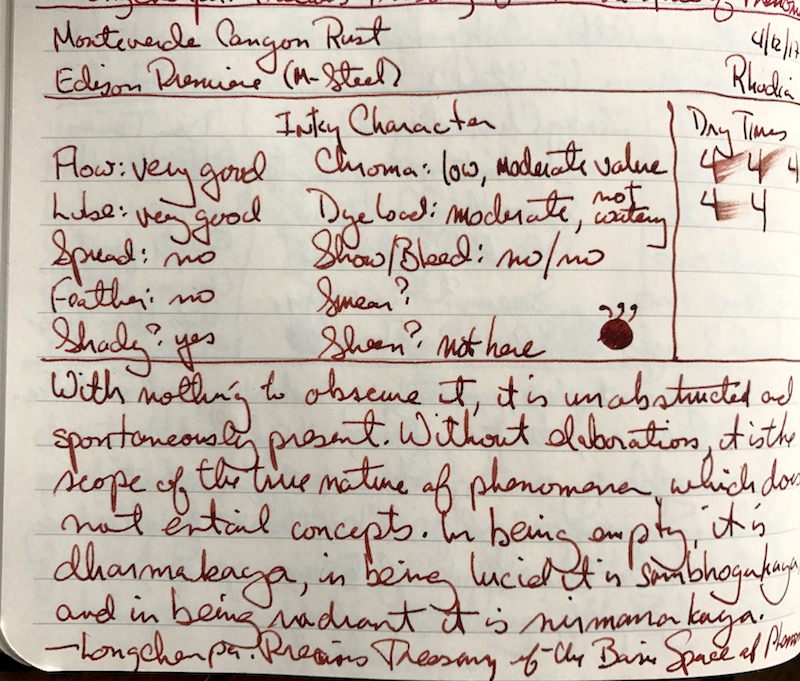 Monteverde Canyon Rust 4/12/17
Edison Premiere (M-Steel) Rhodia
Inky Character Dry Times
Flow: very good Chroma: low, moderate value 4 4 4
Lube: very good Dye load: moderate, not watery 4 4
Spread: no Show/Bleed: no/no
Feather: no Smear?
Shady? yes Sheen? not here
With nothing to obscure it, it is unobstructed and
spontaneously present. Without elaborations, it is the
scope of the true nature of phenomena, which does
not entail concepts. In being empty, it is
dharmakaya, in being lucid it is sambhogakaya,
and in being radiant it is nirmanakaya.
—Longchenpa. Precious Treasury of the Basic Space of Phenom